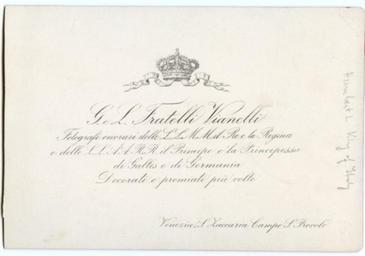 G. L. Fratelli Vianelli
Fotografi onorari delle L.L. M.M. il Re e la Regina
e delle L.L. A.A. R.R. il Principe e la Principessa
di Galles e di Germania
Decorati e premiati più volte
Venezia, S. Zaccaria Campo S. Provolo
Humbert I King of Italy